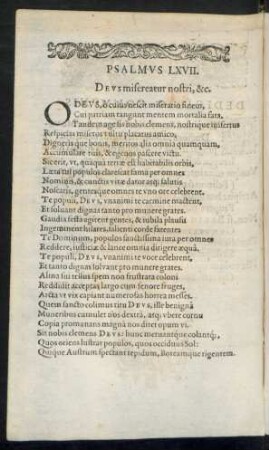 PSALMVS LXVII.
DEVS misereatur nostri, &c.
O DEVS, ô cuius nescit miseratio finem,
Cui patriam tangunt mentem mortalia fata,
Tandem age sis nobis clemens, nostrique misertus
Respicias miseros vultu placatus amico,
Digneris que bonis, meritos aliis omnia quamquam,
Accumulare tuis, & egenos pascere victu.
Sic erit, vt, quaqua terræ est habitabilis orbis,
Læta tui populos clarescat fama per omnes
Nominis, & cunctis vitæ datur atq; salutis
Noscaris, gentesque omnes te voce celebrent.
Te populi, DEVS, vnanimi te carmine mactent,
Et soluant dignas tanto pro munere grates.
Gaudia festa agitent gentes, & iubila plausu
Ingeminent hilares, tali cordе fatentes
Te Dominum, populos sanctissima iura per omnes
Reddere, iustitiæ & lance omnia dirigere æqua.
Te populi, DEVS, vnanimi te voce celebrent,
Et tanto dignas soluant pro munere grates.
Alma sui tellus spem non frustrata coloni
Reddidit acceptas largo cum fenore fruges,
Arcta vt vix capiant numerosas horrea messes.
Quem sancto colimus ritu DEVS, ille benigna
Muneribus cumulet nos dextra, atq; vbere cornu
Copia promanans magna nos ditet opum vi.
Sit nobis clemens DEVS: hunc metuantq; colantq;,
Quos oriens lustrat populos, quos occiduus Sol:
Quique Austrum spectant tepidum, Boreamque rigentem.